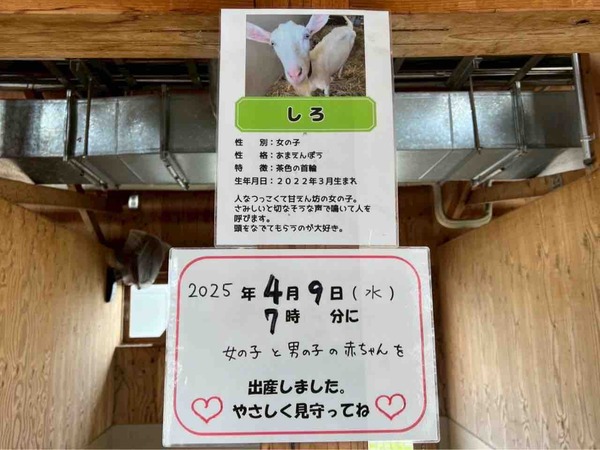 しろ
性　別：女の子
性　格：あまえんぼう
特　徴：茶色の首輪
生年月日：２０２２年３月生まれ
人なつっこくて甘えん坊の女の子。
さみしいと切なそうな声で鳴いて人を
呼びます。
頭をなでてもらうのが大好き。
2025 年 4月 9日（水）
7時　分に
女の子 と 男の子 の 赤ちゃん を
出産しました。
やさしく見守ってね